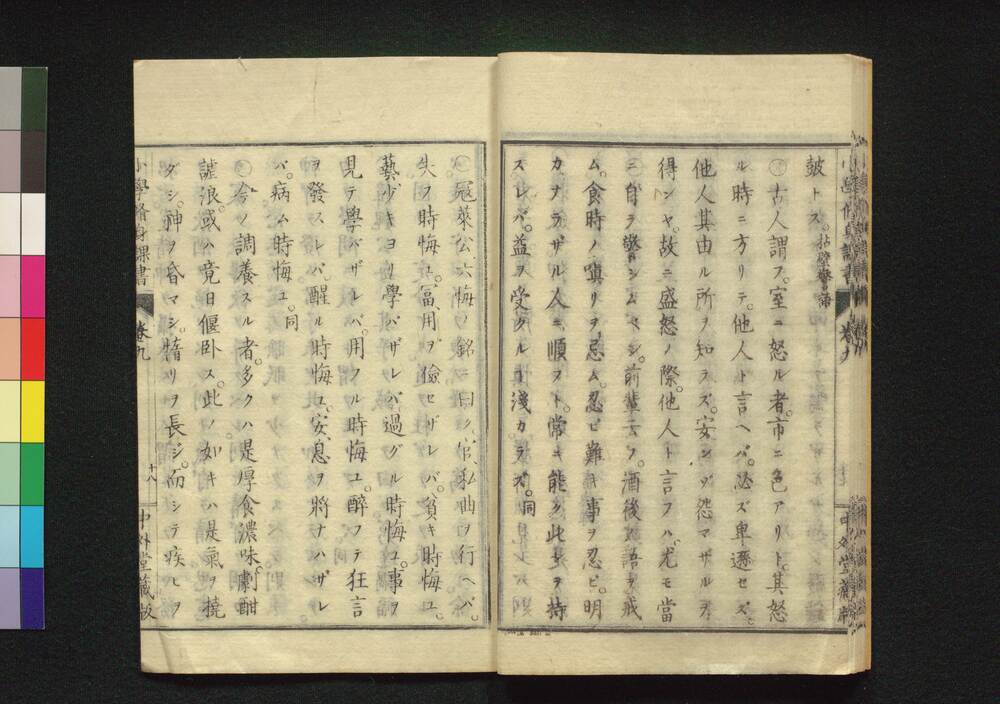 皷トス。拈璧彎箒
㊉古人謂フ。室ニ怒ル者。市ニ色アリト。其怒
ル時ニ方リテ。他人ト言ヘバ。必ズ卑遜セズ。
他人其由ル所ヲ知ラズ。安ンゾ怨マザルヲ
得ンヤ。故ニ盛怒ノ際。他人ト言フハ。尤モ當
ニ自ラ警シムベシ。前輩云フ。酒後ノ語ヲ戒
ム。食時ノ嗔リヲ忌ム。忍ビ難キ事ヲ忍ビ。明
カナラザル人ニ順フト。常ニ能ク此ヲ持
スレバ。益ヲ受クルヿ淺カラズ。同
㊀冦萊公六悔ノ銘ニ曰ク。官、私曲ヲ行ヘバ。
失フ時悔ユ。冨、用ヲ儉セザレバ。貧キ時悔ユ。
藝少キヨリ學バザレバ。過グル時悔ユ。事ヲ
見テ學バザレバ。用フル時悔ユ。醉フテ狂言
ヲ發スレバ。醒ル時悔ユ。安、息ヲ將ナハザレ
バ。病ム時悔ユ。同
㊀今ノ調養スル者。多クハ是厚食濃味。劇酣
謔浪。或ハ竟日偃卧ス。此ノ如キハ是氣ヲ撓
ダシ。神ヲ昏マシ。惰リヲ長シ。而シテ疾ヒヲ
小學脩身課書 卷九 十八 中外堂藏板